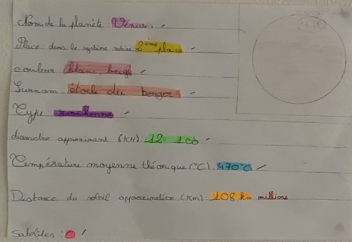 Nom de la planète : Vénus.
Place dans le système solaire 2ème place
couleur blanc beige
Surnom étoile du berger
Type
diametre approximant (KM) 12 100
Température moyenne théorique (°C) : 470°C
Distance du soleil approximative (Km) 108 millions
Satellites : 0